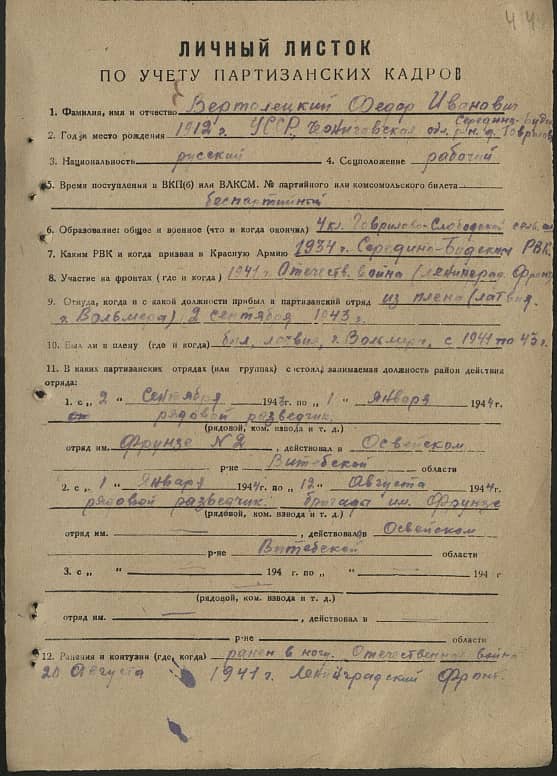 44
ЛИЧНЫЙ ЛИСТОК
ПО УЧЕТУ ПАРТИЗАНСКИХ КАДРОВ
1. Фамилия, имя и отчество Вертолецкий Федор Иванович
Середино-Буд
2. Год и место рождения 1912 г. УССР, Черниговская обл. р-н, д. Гаврилов
3. Национальность русский 4. Соцположение рабочий
5. Время поступления в ВКП(б) или ВЛКСМ. № партийного или комсомольского билета
беспартийный
6. Образование: общее и военное (что и когда окончил) 4 кл. Гаврилово-Слободской
7. Каким РВК и когда призван в Красную Армию 1934 г. Середино-Будским РВК
8. Участие на фронтах (где и когда) 1941 г. Отечеств. война (Ленинград. Фронт
9. Откуда, когда и с какой должности прибыл в партизанский отряд из плена (латвия
г. Вольмера) 2 сентября 1943 г.
10. Был ли в плену (где и когда) был, латвия, г. Вольмера, с 1941 по 43 г.
11. В каких партизанских отрядах (или группах) состоял, занимаемая должность район действия
отряда:
1. с „ 2 “ Сентября 1943 г. по „ 1 “ января 1944 г.
рядовой разведчик.
(рядовой, ком. взвода и т. д.)
отряд им. Фрунзе № 2, действовал в Освейском
р-не Витебской области
2. с „ 1 “ января 1944 г. по „ 12 “ Августа 1944 г.
рядовой разведчик. бригада им. Фрунзе
(рядовой, ком. взвода и т. д.)
отряд им. — , действовал в Освейском
р-не Витебской области
3. с „ “ — 194 г. по „ “ — 194 г
(рядовой, ком. взвода и т. д.)
отряд им. — , действовал в —
р-не — области
12. Ранения и контузии (где, когда) ранен в ногу. Отечественная война
20 Августа 1941 г. Ленинградский Фронт.